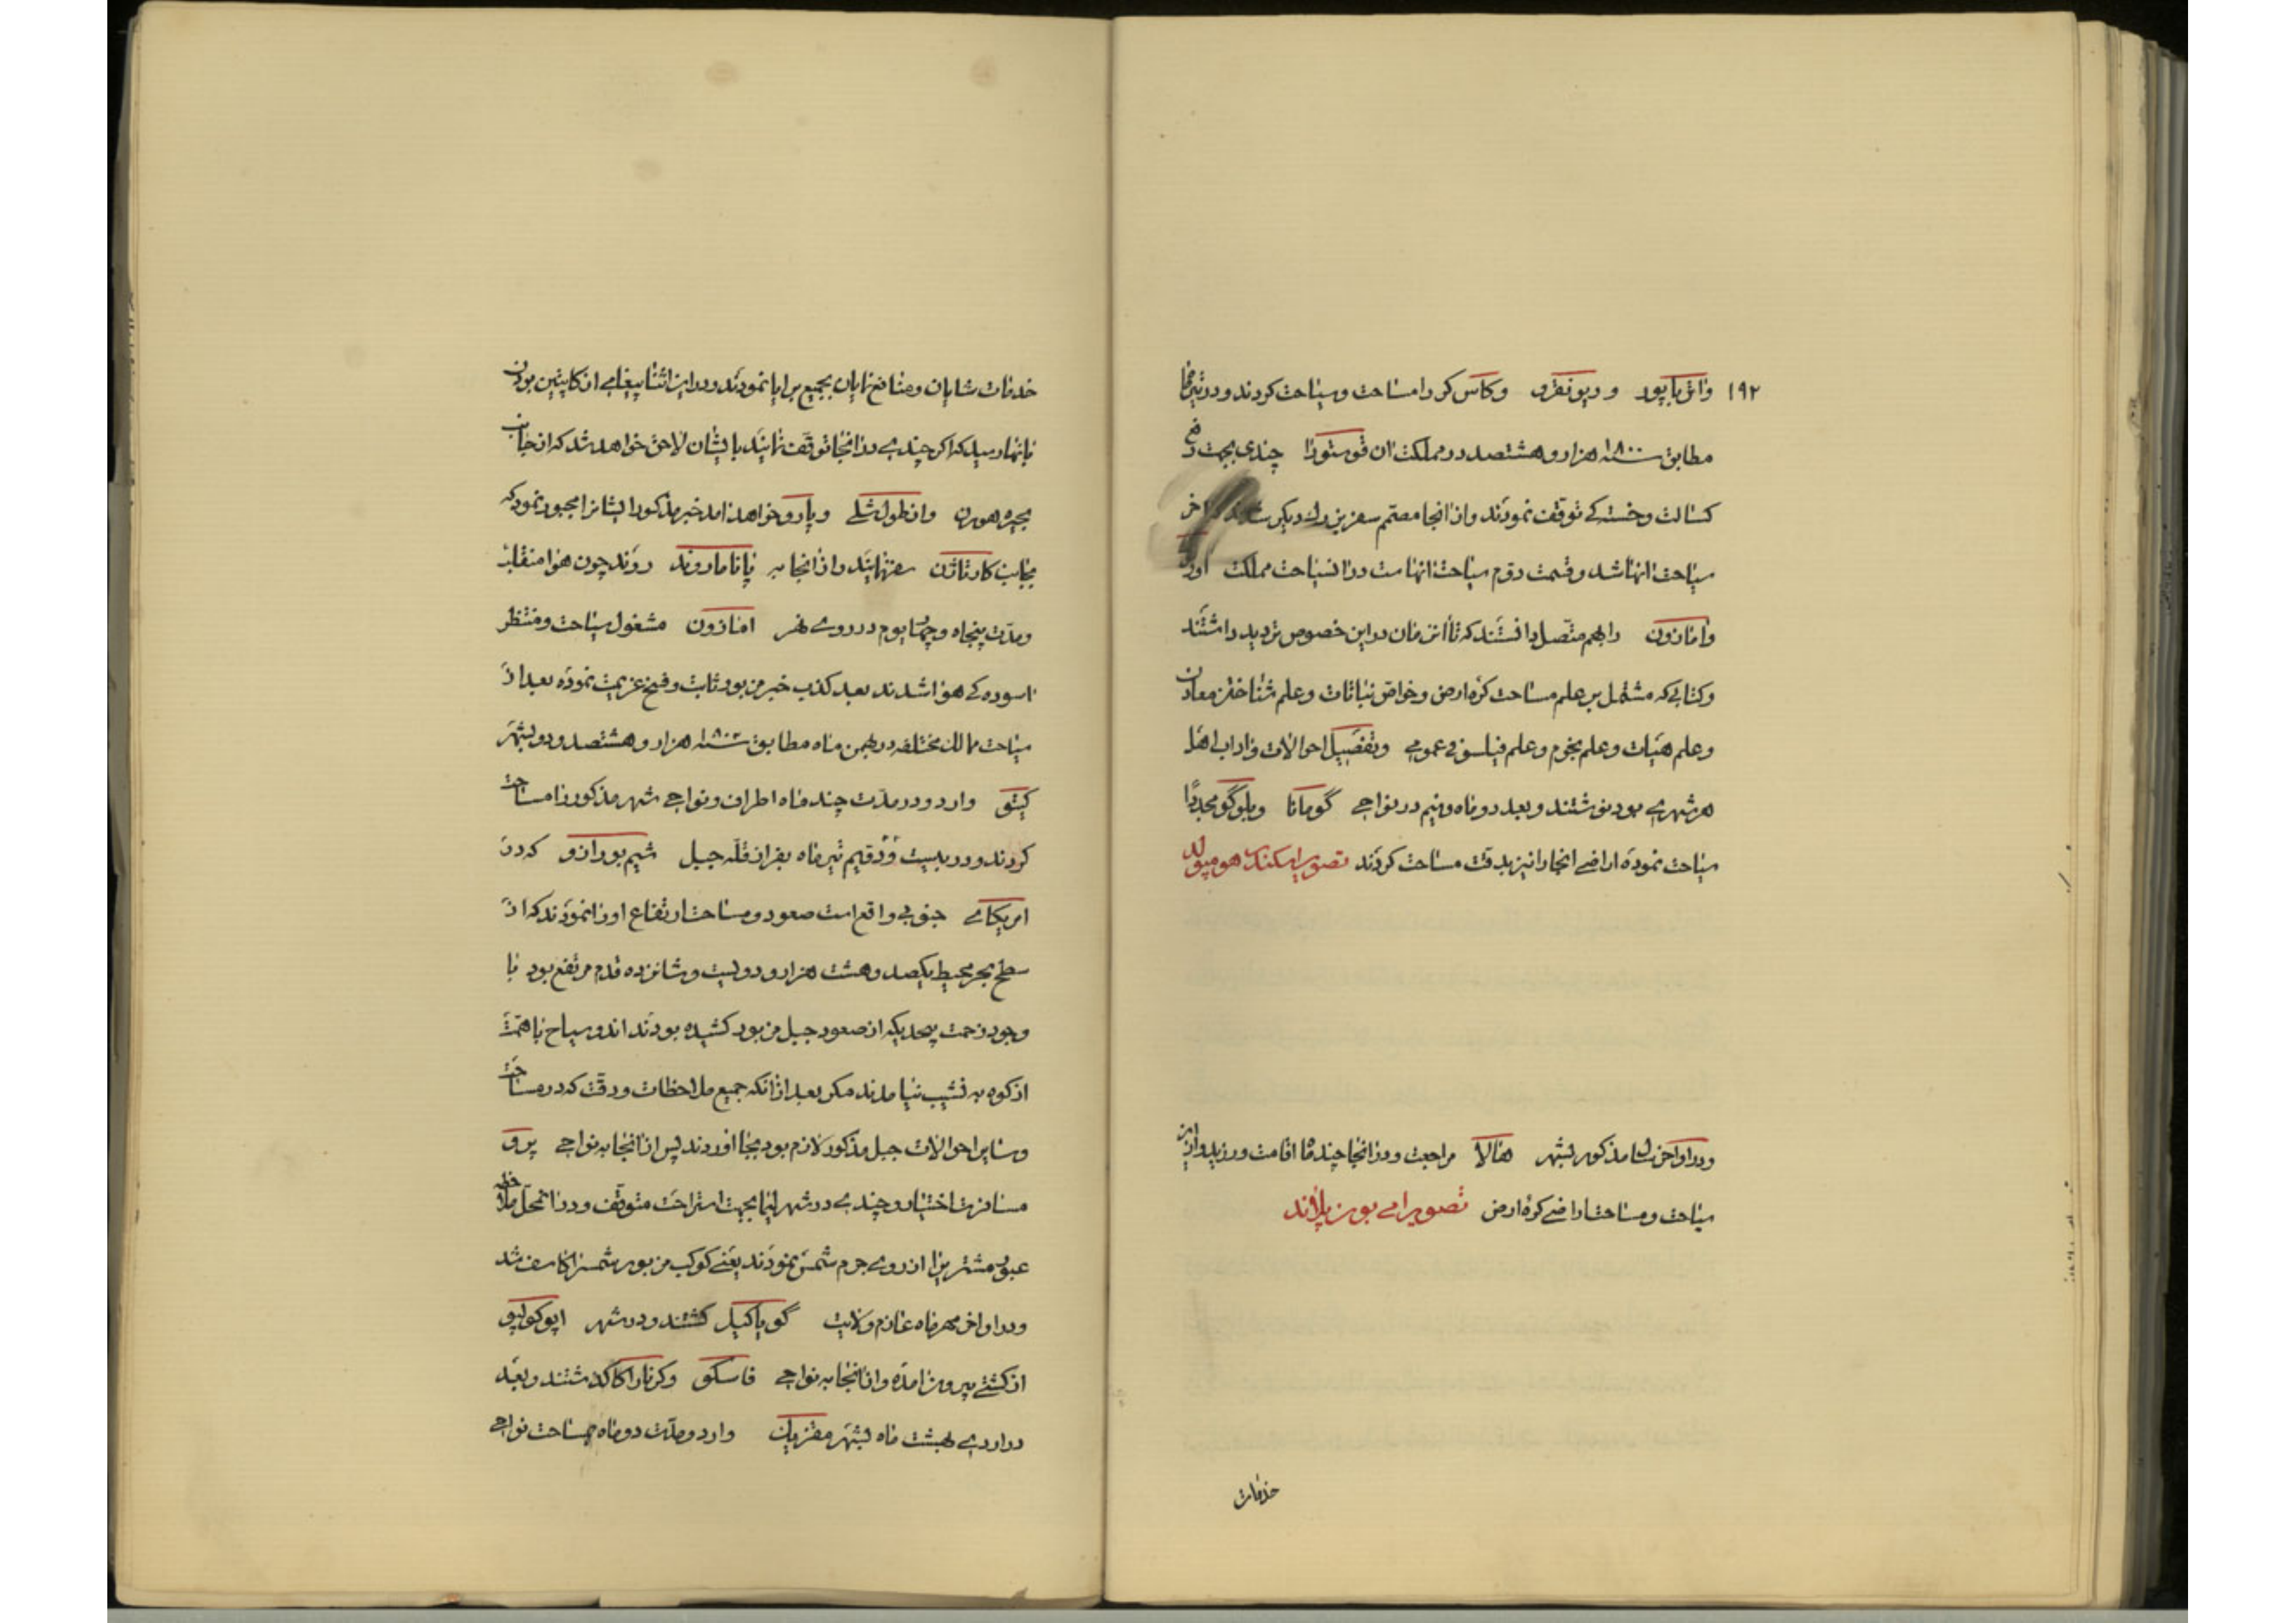 ۱۹۲ واتن باپور و ریونفرو وکاسی کر را مساحت وسیاحت کردند ودر تیرماه
مطابق سنه ۱۸۰۰ هزار و هشتصد در مملکت ان فوستورا چندی بجهت رفع
کسالت وخستگی توقف نمودند واز انجا مصمم سفر بزرك دیکر
سیاحت انها شد وقسمت دوم سیاحت انهاست در ان سیاحت مملکت
وامازون را بهم متصل دانستند که تا ان زمان در این خصوص تردید داشتند
وکتابی که مشتمل بر علم مساحت کره ارض وخواص نباتات وعلم شناختن معادن
وعلم هیات وعلم نجوم وعلم فیلسوفی عمومی وتفصیل احوالات واداب اهل
هر شهری بود نوشتند وبعد دو ماه ونیم در نواحی گومانا وبلوگو مجددًا
سیاحت نموده اراضی انجا را نیز بدقت مساحت کردند تصویر اسکندر هومبولد
ودر اواخر سال مذکور بشهر هنالا مراجعت ودر انجا چند ماه اقامت ورزید واز این
سیاحت ومساحت اراضی کره ارض تصویر امی بون پلاند
خدمات
خدمات شایان ومنافع نمایان بجمیع برایا نمودند ودر این اثنا پیغامی از کاپیتین بودن
بانها رسید که اکر چندی در انجا توقف نمایند بایشان لاحق خواهد شد که از جانب
بجیره هورن واز طول شلی وپارو خواهد امد خبر مذکور ایشانرا مجبور نمود که
بجانب کارتاژن سفر نمایند واز انجا به پاناما روند روند چون هوا منقلب
ومدت پنجاه وچهار یوم در روی نهر امازون مشغول سیاحت ومنتظر
اسوده کی هوا شدند بعد کذب خبر مزبور ثابت وفسخ عزیمت نموده بعد از
سیاحت ممالك مختلفه در بهمن ماه مطابق سنه ۱۸۰۲ هزار وهشتصد ودو بشهر
کیتو وارد ودر مدت چند ماه اطراف ونواحی شهر مذکور را مساحت
کردند ودر بیست ودویم تیر ماه بفراز قله جبل شیم بورازو که در
امریکای جنوبی واقع است صعود ومساحت ارتفاع او را نمودند که از
سطح بحر محیط یکصد وهشت هزار ودویست وشانزده قدم مرتفع بود با
وجود زحمت بیحدیکه از صعود جبل مزبور کشیده بودند اندو سیاح با همت
از کوه به نشیب نیامدند مکر بعد از انکه جمیع ملاحظات ودقت که در مساحت
وسایر احوالات جبل مذکور لازم بود بجا اوردند پس از انجا به نواحی پرو
مسافرت اختیار وچندی در شهر لیما بجهت استراحت متوقف ودر انمحل ملاحظه
عبور مشتری را از روی جرم شمس نمودند یعنی کوکب مزبور شمسرا کاسف شد
ودر اواخر مهر ماه عازم ولایت گویاکیل کشتند ودر شهر اپوکولپو
از کشتی بیرون امده واز انجا به نواحی فاسکو وکرناراکا گذشتند وبعد
در اردی بهشت ماه بشهر مقزیك وارد ومدت دو ماه بمساحت نواحی